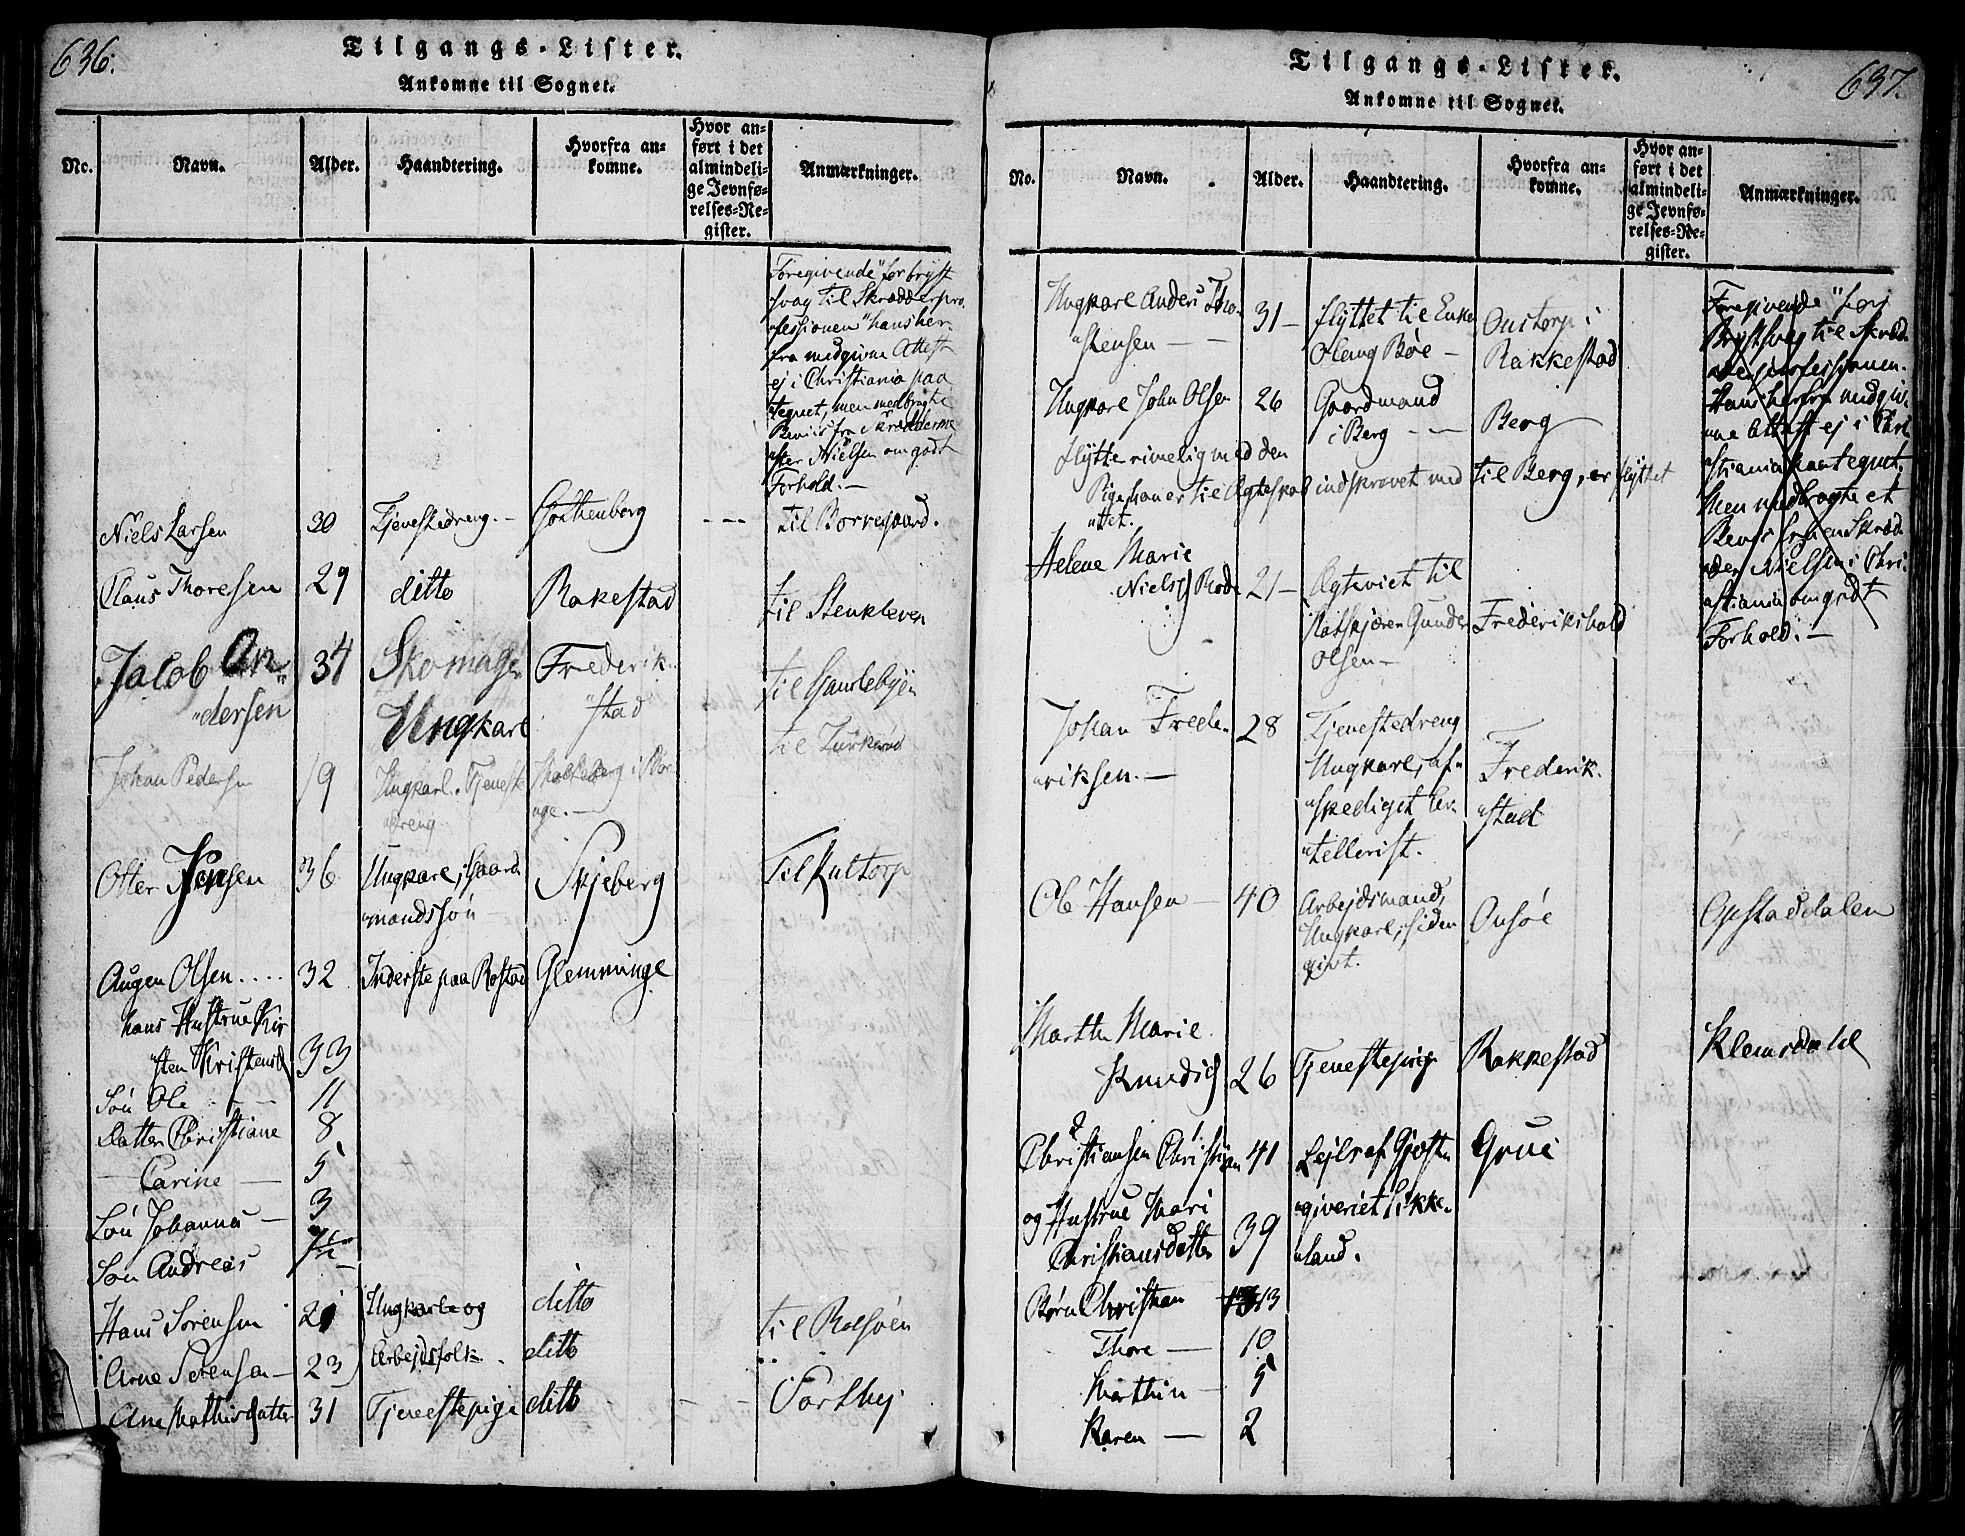 636.
Tilgangs-Lister.
Ankomne til Sognet.
No.
Navn.
Alder.
Haandtering.
Hvorfra an-
komne.
Hvor an-
ført i det
almindeli-
ge Jevnfø-
relses-Re-
gister.
Anmærkninger.
Foregivende "for bryst
svag til Skrædderpro
"fessionen" hans her-
fra medgivne Attest
ej i Christiania paa
tegnet, men medbragte
Beviis fra Skrædderme
ster Nielsen om godt
Forhold.—
Niels Larsen 30 Tjenestedreng.— Gothenborg - - - til Borregaard.
Claus Thoresen 29 ditto Rakestad til Stenkleven
Jacob An- 34 Skomager Frederik- til Gamlebyen
"dersen Ungkarl "stad
Johan Pedersen 19 Ungkarl. Tjeneste til
"dreng "uge.—
Otter Jensen 36 Ungkarl, Gaard Skjeberg Til Kultorp
"mandssøn
Augen Olsen.... 32 Inderste paa Rostad Glemminge
hans Hustrue Kir
"sten Kristensd 33
Søn Ole - - 11
Datter Christiane 8
— Carine — 5
Søn Johannes — 3
Søn Andreas
Hans Sørensen 21 Ungkarle og ditto til Rolsøen
Arne Sørensen — 23 Arbejdsfolk. ditto
Ane Mathisdatter 31 Tjenestepige ditto - - - Torsbej
637.
Tilgangs-Lister.
Ankomne til Sognet.
No.
Navn.
Alder.
Haandtering.
Hvorfra an-
komne.
Hvor an-
ført i det
almindeli-
ge Jevnfø-
relses-Re-
gister.
Anmærkninger.
Ungkarl Anders Tho- 31— flyttet til Enke Oustorp i
"stensen — — Olaug Bøe — Rakkestad
Foregivende "for
Brystsvag til Skræd-
"derprofessionen.
Hans herfra medgiv-
"ne Attest ej i Chri
"stiania paategnet.
Men medbragte et
Beviis fra en Skræd-
"der Nielsen i Chri-
"stiania om godt
Forhold.—
Ungkarl John Olsen 26 Gaardmand
i Berg — — Berg
flytte rimelig med den
Pige han er til Ægteskab indskrevet med til Berg, er flyttet
"ttet.
Helene Marie
Niels 21— Ægteviet til
Gunder Frederikshald
Olsen—
Johan Frede- 28 Tjenestedreng
"riksen.— Ungkarl, af- Frederik-
"skediget Ar- "stad
"tellerist.
Ole Hansen — 40 Arbejdsmand, Onsøe Opstaddalen
Ungkarl, siden
givt.
Marthe Marie
Knudsd 26 Tjenestepige Rakkestad Klemsdahl
2 1
Christiansen Christian 41 Lejls af Gjæst Grue
og Hustrue Mari "giveriet Likke-
Christiansdatter 39 "land.
Børn Christian 13
Thore — 10
Marthin — 5
Karen — 2